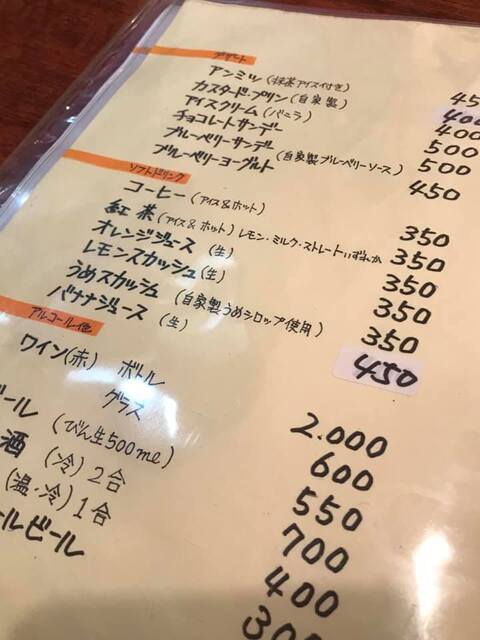 デザート
アンミツ(抹茶アイス付き) 45
カスタード・プリン(自家製) 400
アイスクリーム(バニラ) 400
チョコレートサンデー 500
ブルーベリーサンデー 500
ブルーベリーヨーグルト(自家製ブルーベリーソース) 450
ソフトドリンク
コーヒー(アイス&ホット) 350
紅茶(アイス&ホット)レモン・ミルク・ストレートいずれか 350
オレンジジュース(生) 350
レモンスカッシュ(生) 350
うめスカッシュ(自家製うめシロップ使用) 350
バナナジュース(生) 450
アルコール他
ワイン(赤) ボトル 2.000
グラス 600
ビール(びん生500ml) 550
酒(冷)2合 700
(温・冷)1合 400
ールビール 300